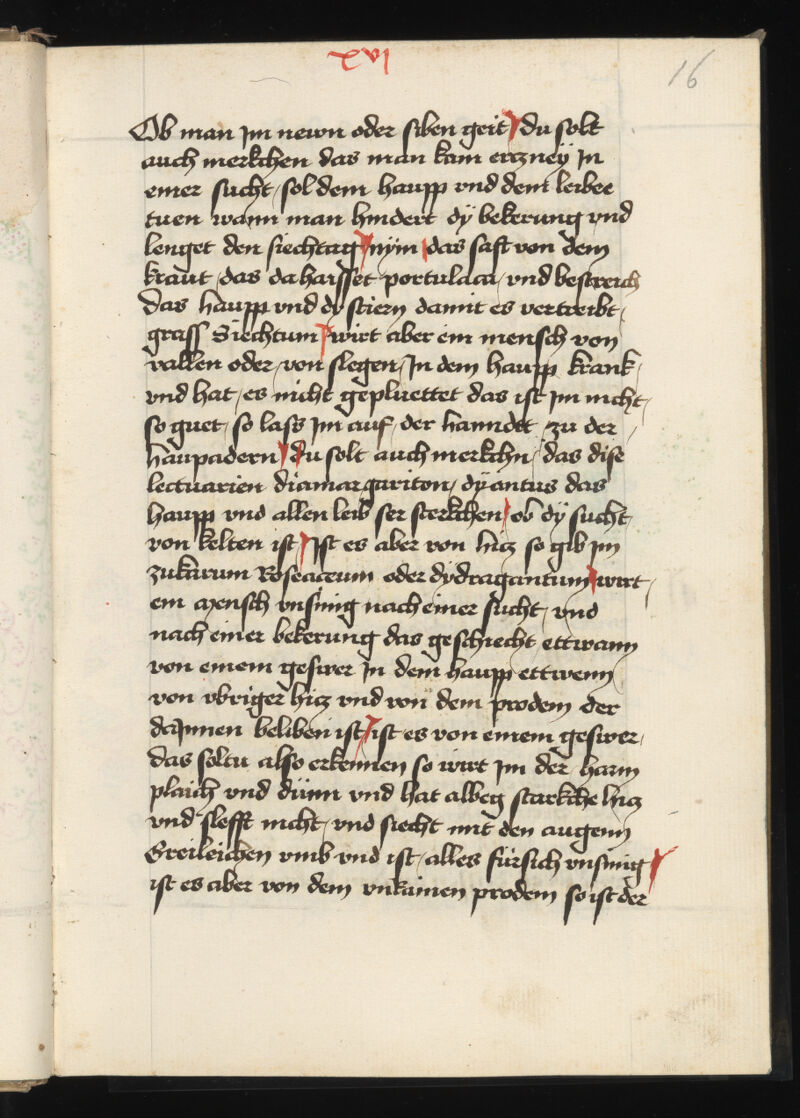 xvi
16
Ob man im newn oder siben geit du solt
auch merkchen das man kain erczney in
einer sucht sol dem haupp vnd dem leibee
tuen wann man hindert dÿ bekerung vnd
lenget den siechtag nym das saft von dem
kraut das da haisset portulaca vnd bestreich
das haupp vnd dy stiern damit es vertreibt
grass Siechtum wirt aber ein mensch von
vallen oder von slegen In dem haupp krank
vnd hat es nicht gepluettet das ist im nicht
so guet so lass im auf der hanndt zu der
haupadern du solt auch merkchn das dise
lectuarien diamargariton dyantus das
haupp vnd allen leib ser sterkchen ob dÿ sucht
von kelten ist Ist es aber von hicz so gib im
zukarum Rosaceum oder dÿdragantum wirt
ein mensch vnsinig nach einer sucht vnd
nach einer bekerung das geschiecht ettwann
von einem geswer In dem haupp ettwenn
von vbriger hicz vnd von dem prodem der
dainnen beliben ist ist es von einem geswer
das soltu also erkennen so wirt im der harm
plaich vnd dünn vnd hat albeg starkche hicz
vnd slefft nicht vnd siecht mit den augenn
Greileichen vmb vnd ist alles fürsich vnsinig
ist es aber von dem vnrainen prodem so ist der